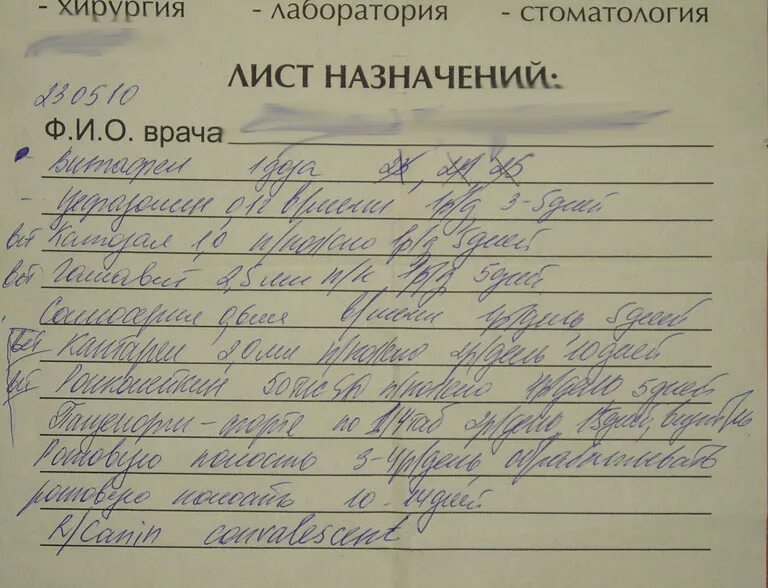 - хирургия - лаборатория - стоматология
ЛИСТ НАЗНАЧЕНИЙ:
230510
Ф.И.О. врача
- Витафел 1 доза 23, 24, 25
- Цефазолин 0,12 в/мышечно 1р/д 3-5дней
вет Катозал 1,0 п/кожно 1р/д 5дней
вет Гамавит 2,5мл п/к 1р/д 5дней
0,6мл в/мышечно 1р/день 5дней
вет Кантарен 2,0мл п/кожно 2р/день 10дней
вет Ронколейкин 50тыс ЕД п/кожно 1р/день, 5дней
форте по 1/4таб 2р/день, 15дней,
Ротовую полость 3-4р/день, обрабатывать
ротовую полость 10-14дней
R/Canin convalescent